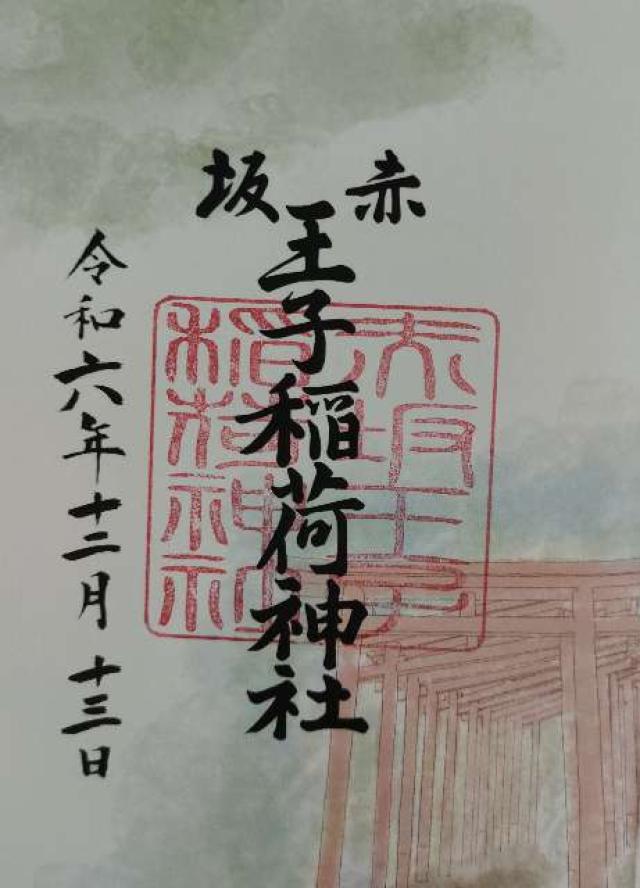 赤坂
王子稲荷神社
赤坂王子
稲荷神社
令和六年十二月十三日